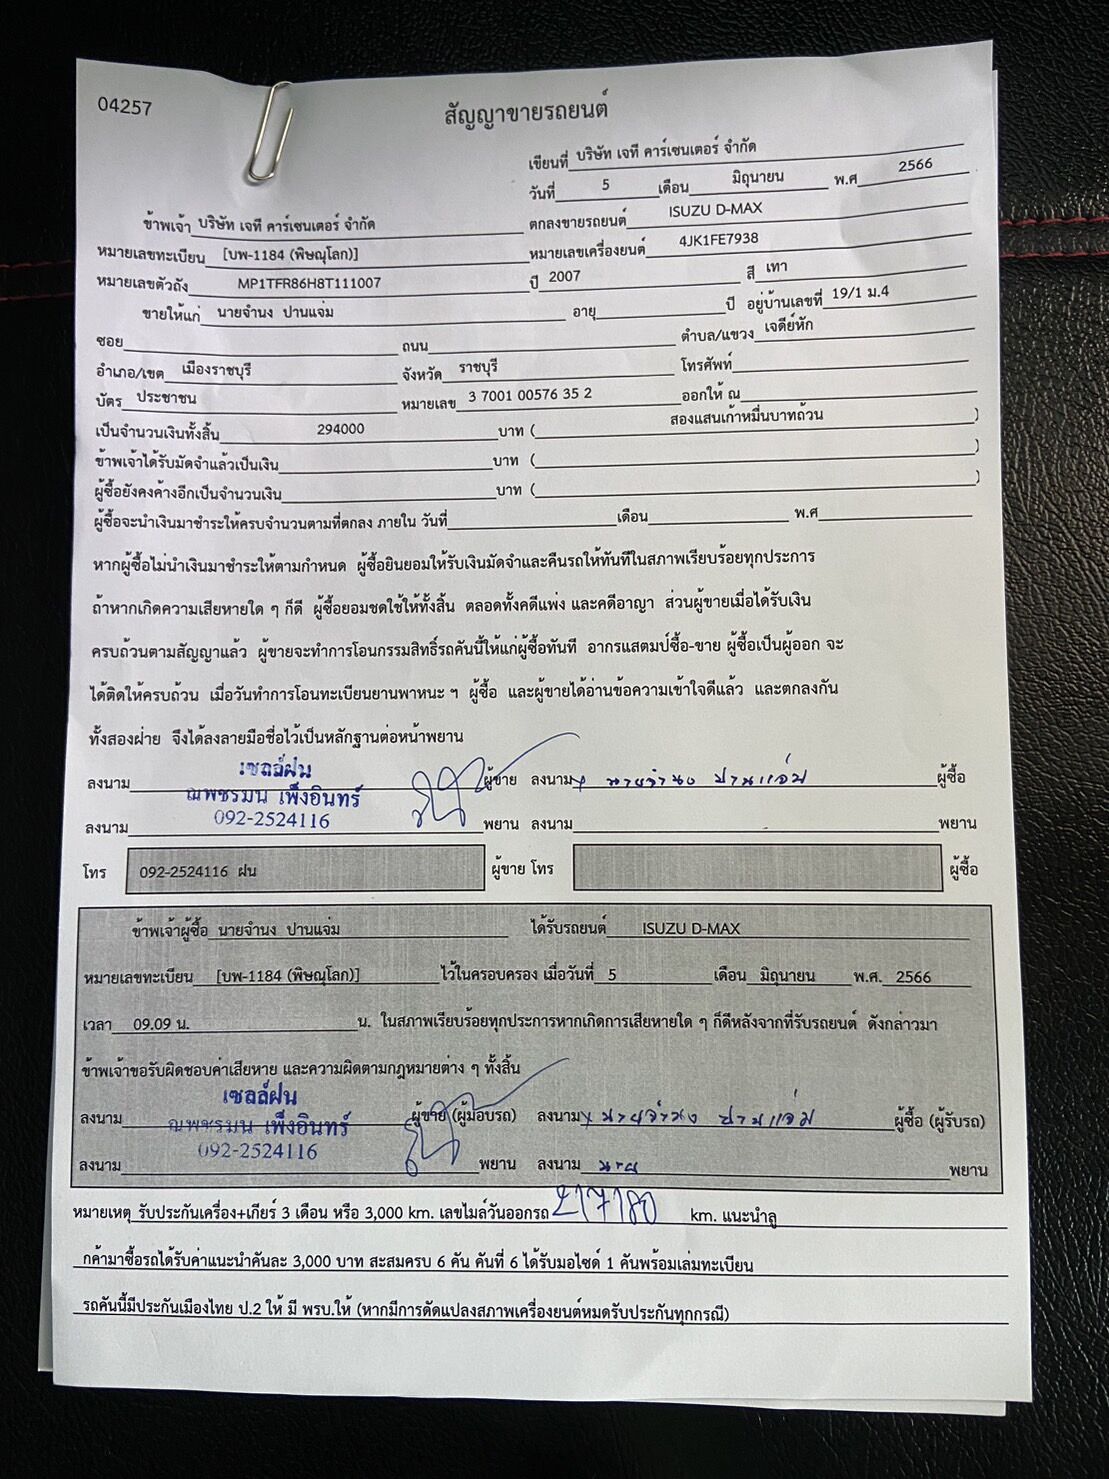 04257
สัญญาขายรถยนต์
เขียนที่ บริษัท เจที คาร์เซนเตอร์ จำกัด
วันที่ 5 เดือน มิถุนายน พ.ศ 2566
ข้าพเจ้า บริษัท เจที คาร์เซนเตอร์ จำกัด ตกลงขายรถยนต์ ISUZU D-MAX
หมายเลขทะเบียน [บพ-1184 (พิษณุโลก)] หมายเลขเครื่องยนต์ 4JK1FE7938
หมายเลขตัวถัง MP1TFR86H8T111007 ปี 2007 สี เทา
ขายให้แก่ นายจำนง ปานแจ่ม อายุ ปี อยู่บ้านเลขที่ 19/1 ม.4
ซอย ถนน ตำบล/แขวง เจดีย์หัก
อำเภอ/เขต เมืองราชบุรี จังหวัด ราชบุรี โทรศัพท์
บัตร ประชาชน หมายเลข 3 7001 00576 35 2 ออกให้ ณ
เป็นจำนวนเงินทั้งสิ้น 294000 บาท ( สองแสนเก้าหมื่นบาทถ้วน )
ข้าพเจ้าได้รับมัดจำแล้วเป็นเงิน บาท ( )
ผู้ซื้อยังคงค้างอีกเป็นจำนวนเงิน บาท ( )
ผู้ซื้อจะนำเงินมาชำระให้ครบจำนวนตามที่ตกลง ภายใน วันที่ เดือน พ.ศ
หากผู้ซื้อไม่นำเงินมาชำระให้ตามกำหนด ผู้ซื้อยินยอมให้รับเงินมัดจำและคืนรถให้ทันทีในสภาพเรียบร้อยทุกประการ
ถ้าหากเกิดความเสียหายใด ๆ ก็ดี ผู้ซื้อยอมชดใช้ให้ทั้งสิ้น ตลอดทั้งคดีแพ่ง และคดีอาญา ส่วนผู้ขายเมื่อได้รับเงิน
ครบถ้วนตามสัญญาแล้ว ผู้ขายจะทำการโอนกรรมสิทธิ์รถคันนี้ให้แก่ผู้ซื้อทันที อากรแสตมป์ซื้อ-ขาย ผู้ซื้อเป็นผู้ออก จะ
ได้ติดให้ครบถ้วน เมื่อวันทำการโอนทะเบียนยานพาหนะ ฯ ผู้ซื้อ และผู้ขายได้อ่านข้อความเข้าใจดีแล้ว และตกลงกัน
ทั้งสองฝ่าย จึงได้ลงลายมือชื่อไว้เป็นหลักฐานต่อหน้าพยาน
เซลล์ฝน
ลงนาม ผู้ขาย ลงนาม นายจำนง ปานแจ่ม ผู้ซื้อ
ณพชรมน เพ็งอินทร์
092-2524116
ลงนาม พยาน ลงนาม พยาน
โทร 092-2524116 ฝน ผู้ขาย โทร ผู้ซื้อ
ข้าพเจ้าผู้ซื้อ นายจำนง ปานแจ่ม ได้รับรถยนต์ ISUZU D-MAX
หมายเลขทะเบียน [บพ-1184 (พิษณุโลก)] ไว้ในครอบครอง เมื่อวันที่ 5 เดือน มิถุนายน พ.ศ. 2566
เวลา 09.09 น. น. ในสภาพเรียบร้อยทุกประการหากเกิดการเสียหายใด ๆ ก็ดีหลังจากที่รับรถยนต์ ดังกล่าวมา
ข้าพเจ้าขอรับผิดชอบค่าเสียหาย และความผิดตามกฎหมายต่าง ๆ ทั้งสิ้น
เซลล์ฝน
ลงนาม ผู้ขาย (ผู้มอบรถ) ลงนาม นายจำนง ปานแจ่ม ผู้ซื้อ (ผู้รับรถ)
ณพชรมน เพ็งอินทร์
092-2524116
ลงนาม พยาน ลงนาม นาย พยาน
หมายเหตุ รับประกันเครื่อง+เกียร์ 3 เดือน หรือ 3,000 km. เลขไมล์วันออกรถ 217180 km. แนะนำลู
กค้ามาซื้อรถได้รับค่าแนะนำคันละ 3,000 บาท สะสมครบ 6 คัน คันที่ 6 ได้รับมอไซด์ 1 คันพร้อมเล่มทะเบียน
รถคันนี้มีประกันเมืองไทย ป.2 ให้ มี พรบ.ให้ (หากมีการดัดแปลงสภาพเครื่องยนต์หมดรับประกันทุกกรณี)